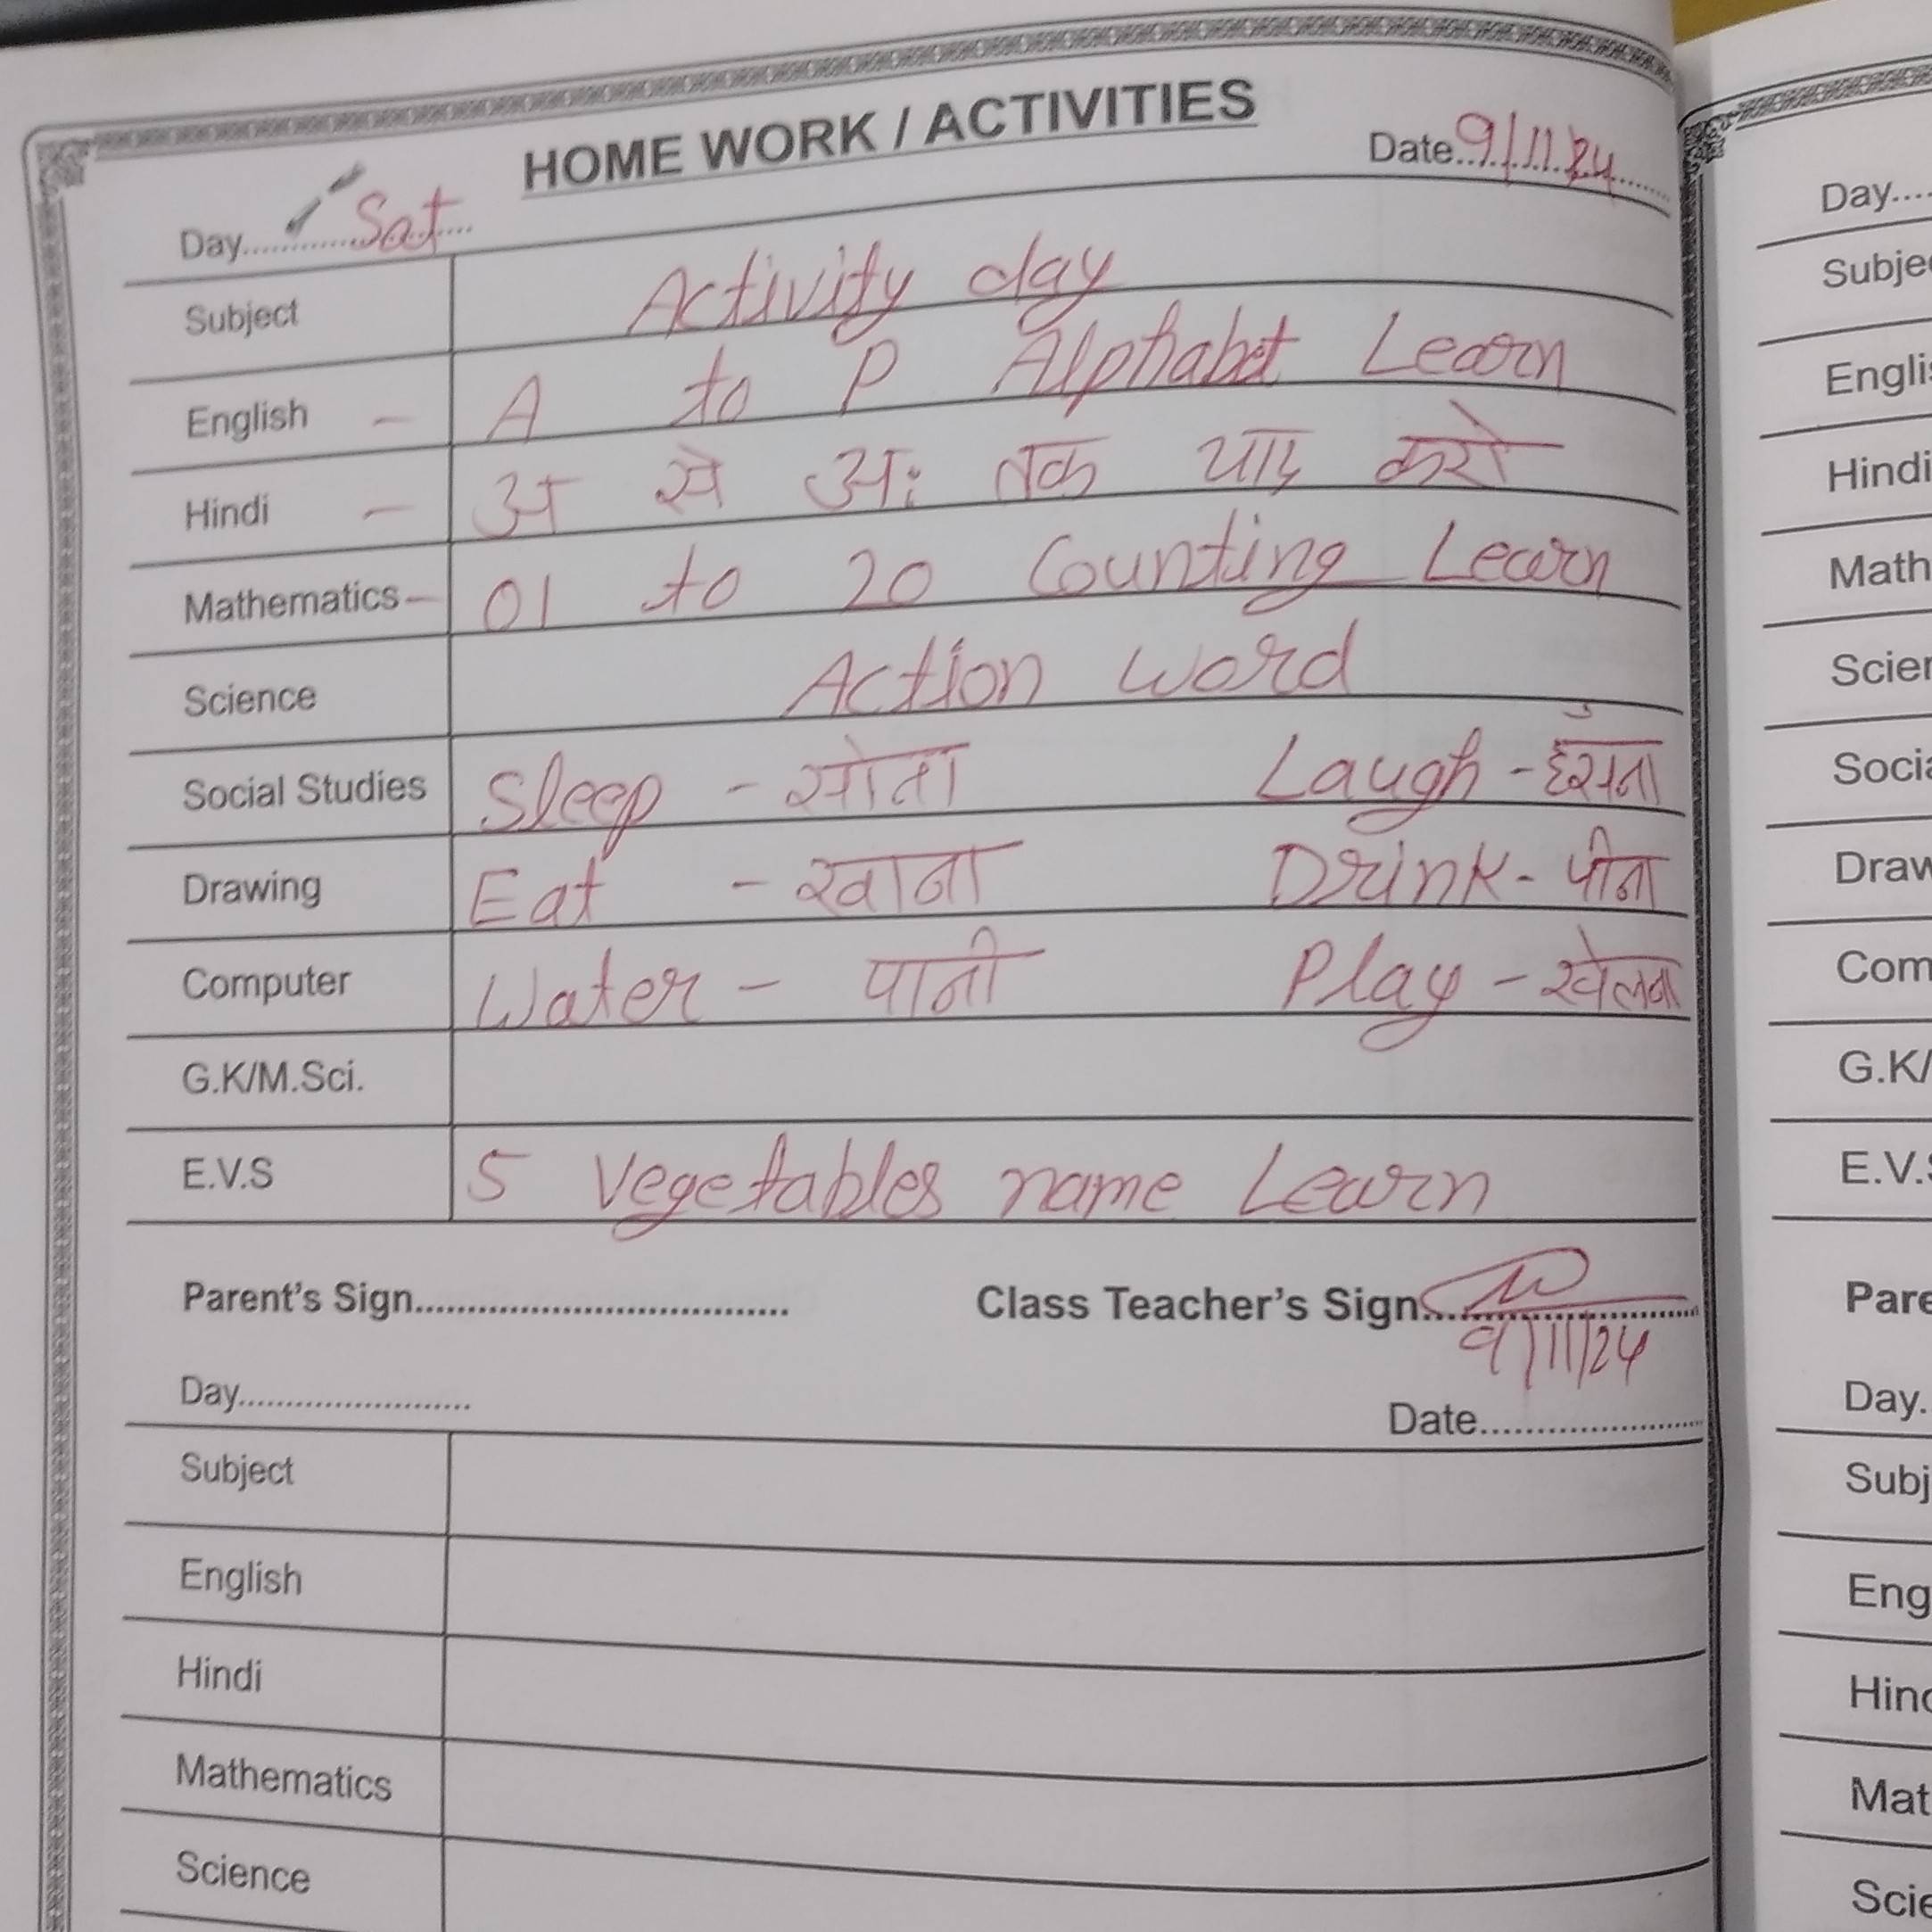 HOME WORK / ACTIVITIES
Day.......... Sat Date 9/11/24
Subject Activity day
English - A to P Alphabet Learn
Hindi - अ से अ: तक याद करो
Mathematics - 01 to 20 Counting Learn
Science Action word
Social Studies Sleep - सोना Laugh - हँसना
Drawing Eat - खाना Drink - पीना
Computer Water - पानी Play - खेलना
G.K/M.Sci.
E.V.S 5 Vegetables name Learn
Parent's Sign.................................... Class Teacher's Sign..........
9/11/24
Day......................... Date........................
Subject
English
Hindi
Mathematics
Science
Day....
Subje
Englis
Hindi
Math
Scier
Socia
Draw
Com
G.K/
E.V.S
Pare
Day.
Subj
Eng
Hind
Mat
Scie